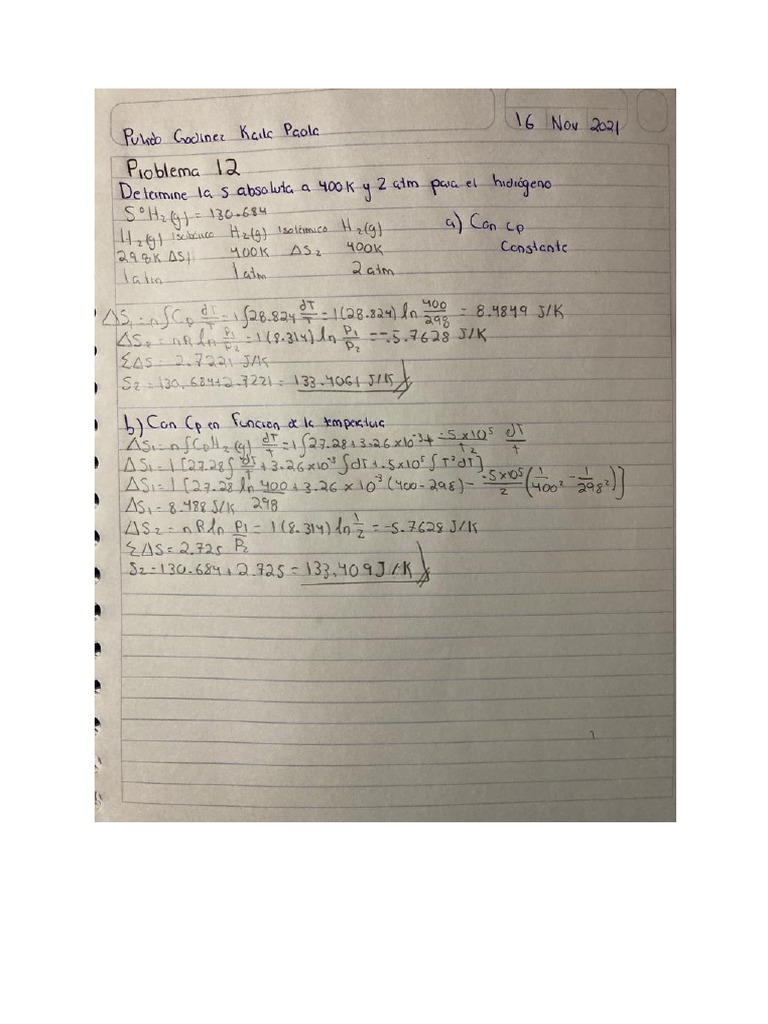 Pulido Godinez Karla Paola
16 Nov 2021
Problema 12
Determine la s absoluta a 400K y 2 atm para el hidrógeno
S°H₂(g) = 130.684
H₂(g) Isobárico H₂(g) Isotérmico H₂(g)
a) Con Cp
Constante
298K ΔS₁ 400K ΔS₂ 400K
1 atm 1 atm 2 atm
ΔS₁ = n∫Cp dT/T = 1∫28.824 dT/T = 1(28.824) ln 400/298 = 8.4849 J/K
ΔS₂ = nR ln P1/P2 = 1(8.314) ln P1/P2 = -5.7628 J/K
ΣΔS = 2.7221 J/K
S₂ = 130.684 + 2.7221 = 133.4061 J/K
b) Con Cp en funcion de la temperatura
ΔS₁ = n∫CpH₂(g) dT/T = 1∫27.28 + 3.26x10⁻³+ .5x10⁵/T² dT/T
ΔS₁ = 1[27.28∫dT/T + 3.26x10⁻³∫dT + .5x10⁵∫T³dT]
ΔS₁ = 1[27.28 ln 400/298 + 3.26x10⁻³(400-298) - .5x10⁵/2 (1/400² - 1/298²)]
ΔS₁ = 8.488 J/K
ΔS₂ = nR ln P1/P2 = 1(8.314) ln 1/2 = -5.7628 J/K
ΣΔS = 2.725
S₂ = 130.684 + 2.725 = 133.409 J/K